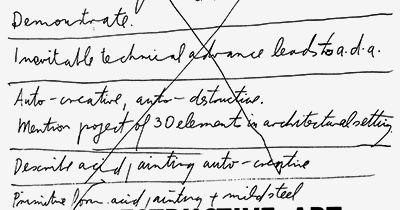 Demonstrate.
Inevitable technical advance leads to a.d.a.
Auto-creative, auto-dstructive.
Mention project of 30 element in architectural setting
Describe acid painting auto-creative
Primitive form. acid painting + mild steel
ART